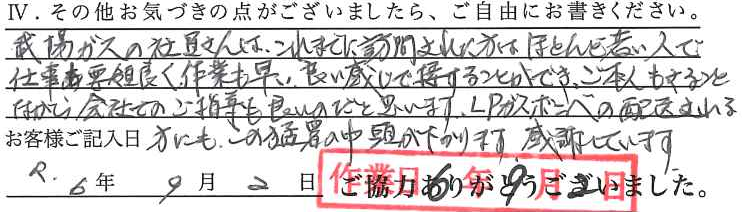 Ⅳ．その他お気づきの点がございましたら、ご自由にお書きください。
武陽ガスの社員さんは、これまでに訪問された方はほとんど若い人で
仕事も要領良く作業も早い、良い感じで接することができ、ご本人もさることながら
会社でのご指導も良いのだと思います。LPガスボンベの配送される
お客様ご記入日 方にも、この猛暑の中頭が下がります。感謝しています
R. 6年 9月 2日 ご協力ありがとうございました。
作業日 6年9月2日